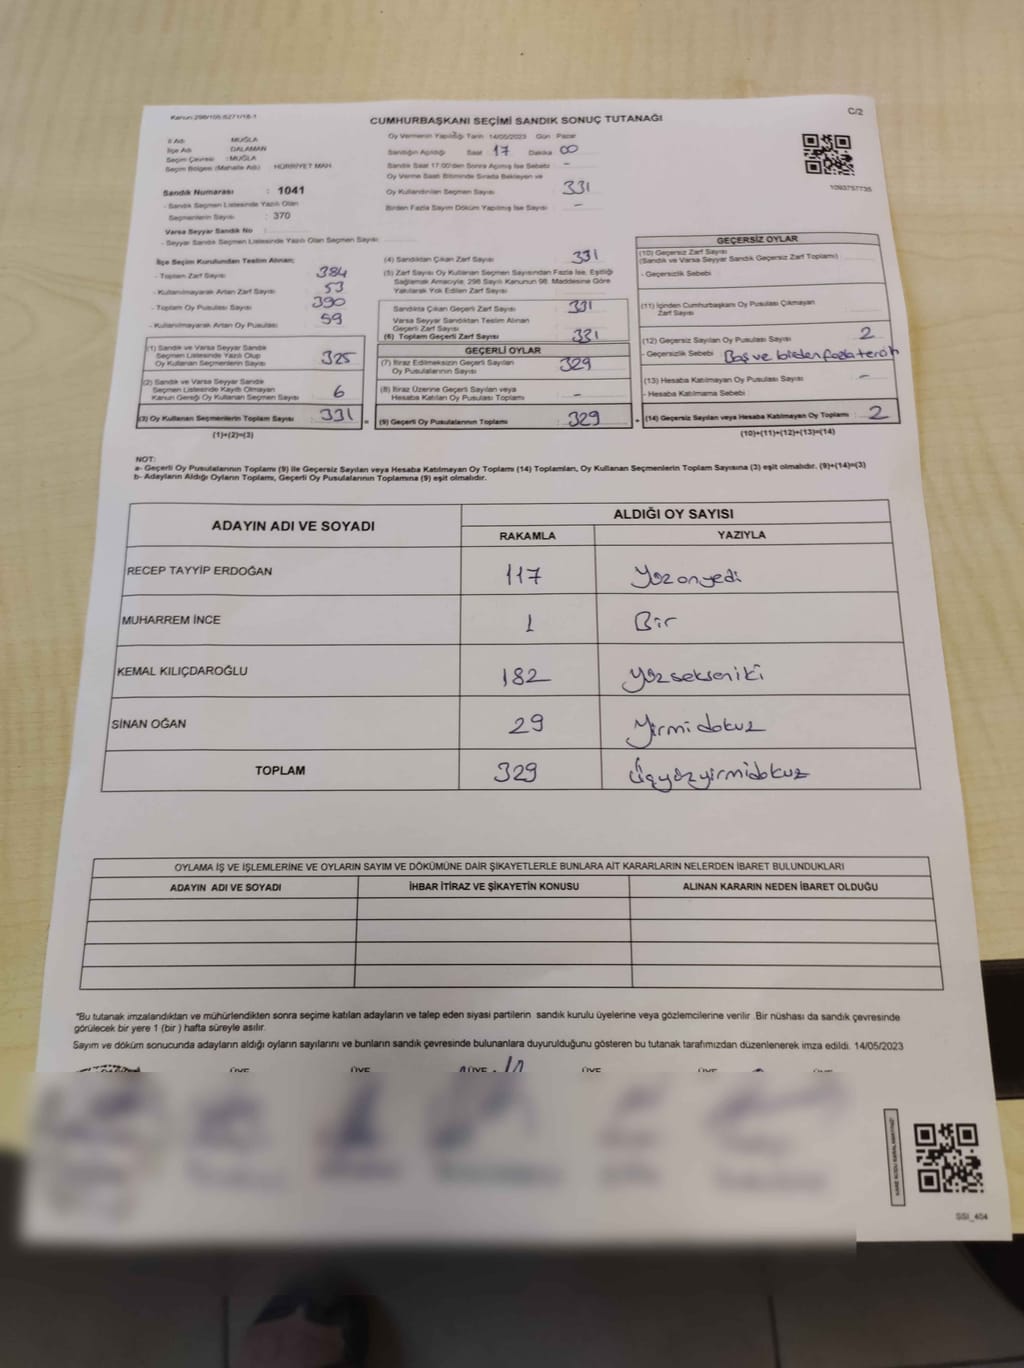 Kanun:298/105,6271/18-1
C/2
CUMHURBAŞKANI SEÇİMİ SANDIK SONUÇ TUTANAĞI
1093757735
İl Adı MUĞLA
İlçe Adı DALAMAN
Seçim Çevresi : MUĞLA
Seçim Bölgesi (Mahalle Adı) HÜRRİYET MAH.
Sandık Numarası : 1041
- Sandık Seçmen Listesinde Yazılı Olan
Seçmenlerin Sayısı : 370
Varsa Seyyar Sandık No
- Seyyar Sandık Seçmen Listesinde Yazılı Olan Seçmen Sayısı
Oy Vermenin Yapıldığı Tarih 14/05/2023 Gün Pazar
Sandığın Açıldığı Saat 17 Dakika 00
Sandık Saat 17:00'den Sonra Açılmış İse Sebebi -
Oy Verme Saati Bitiminde Sırada Bekleyen ve
Oy Kullandırılan Seçmen Sayısı 331
Birden Fazla Sayım Döküm Yapılmış İse Sayısı -
İlçe Seçim Kurulundan Teslim Alınan;
- Toplam Zarf Sayısı 384
- Kullanılmayarak Artan Zarf Sayısı 53
- Toplam Oy Pusulası Sayısı 390
- Kullanılmayarak Artan Oy Pusulası 59
(1) Sandık ve Varsa Seyyar Sandık
Seçmen Listesinde Yazılı Olup
Oy Kullanan Seçmenlerin Sayısı 325
(2) Sandık ve Varsa Seyyar Sandık
Seçmen Listesinde Kayıtlı Olmayan
Kanun Gereği Oy Kullanan Seçmen Sayısı 6
(3) Oy Kullanan Seçmenlerin Toplam Sayısı 331
(1)+(2)=(3)
(4) Sandıktan Çıkan Zarf Sayısı 331
(5) Zarf Sayısı Oy Kullanan Seçmen Sayısından Fazla İse, Eşitliği
Sağlamak Amacıyla, 298 Sayılı Kanunun 98. Maddesine Göre
Yakılarak Yok Edilen Zarf Sayısı
Sandıkta Çıkan Geçerli Zarf Sayısı 331
Varsa Seyyar Sandıktan Teslim Alınan
Geçerli Zarf Sayısı
(6) Toplam Geçerli Zarf Sayısı 331
GEÇERLİ OYLAR
(7) İtiraz Edilmeksizin Geçerli Sayılan
Oy Pusulalarının Sayısı 329
(8) İtiraz Üzerine Geçerli Sayılan veya
Hesaba Katılan Oy Pusulası Toplamı -
= (9) Geçerli Oy Pusulalarının Toplamı 329
GEÇERSİZ OYLAR
(10) Geçersiz Zarf Sayısı
(Sandık ve Varsa Seyyar Sandık Geçersiz Zarf Toplamı)
- Geçersizlik Sebebi
(11) İçinden Cumhurbaşkanı Oy Pusulası Çıkmayan
Zarf Sayısı
(12) Geçersiz Sayılan Oy Pusulası Sayısı 2
- Geçersizlik Sebebi Boş ve birden fazla tercih
(13) Hesaba Katılmayan Oy Pusulası Sayısı -
- Hesaba Katılmama Sebebi
+ (14) Geçersiz Sayılan veya Hesaba Katılmayan Oy Toplamı 2
(10)+(11)+(12)+(13)=(14)
NOT:
a- Geçerli Oy Pusulalarının Toplamı (9) ile Geçersiz Sayılan veya Hesaba Katılmayan Oy Toplamı (14) Toplamları, Oy Kullanan Seçmenlerin Toplam Sayısına (3) eşit olmalıdır. (9)+(14)=(3)
b- Adayların Aldığı Oyların Toplamı, Geçerli Oy Pusulalarının Toplamına (9) eşit olmalıdır.
ADAYIN ADI VE SOYADI
ALDIĞI OY SAYISI
RAKAMLA YAZIYLA
RECEP TAYYİP ERDOĞAN 117 Yüzonyedi
MUHARREM İNCE 1 Bir
KEMAL KILIÇDAROĞLU 182 Yüzsekseniki
SİNAN OĞAN 29 Yirmidokuz
TOPLAM 329 Üçyüzyirmidokuz
OYLAMA İŞ VE İŞLEMLERİNE VE OYLARIN SAYIM VE DÖKÜMÜNE DAİR ŞİKAYETLERLE BUNLARA AİT KARARLARIN NELERDEN İBARET BULUNDUKLARI
ADAYIN ADI VE SOYADI İHBAR İTİRAZ VE ŞİKAYETİN KONUSU ALINAN KARARIN NEDEN İBARET OLDUĞU
"Bu tutanak imzalandıktan ve mühürlendikten sonra seçime katılan adayların ve talep eden siyasi partilerin sandık kurulu üyelerine veya gözlemcilerine verilir. Bir nüshası da sandık çevresinde
görülecek bir yere 1 (bir) hafta süreyle asılır.
Sayım ve döküm sonucunda adayların aldığı oyların sayılarını ve bunların sandık çevresinde bulunanlara duyurulduğunu gösteren bu tutanak tarafımızdan düzenlenerek imza edildi. 14/05/2023
ÜYE ÜYE ÜYE ÜYE ÜYE ÜYE
SSI_404